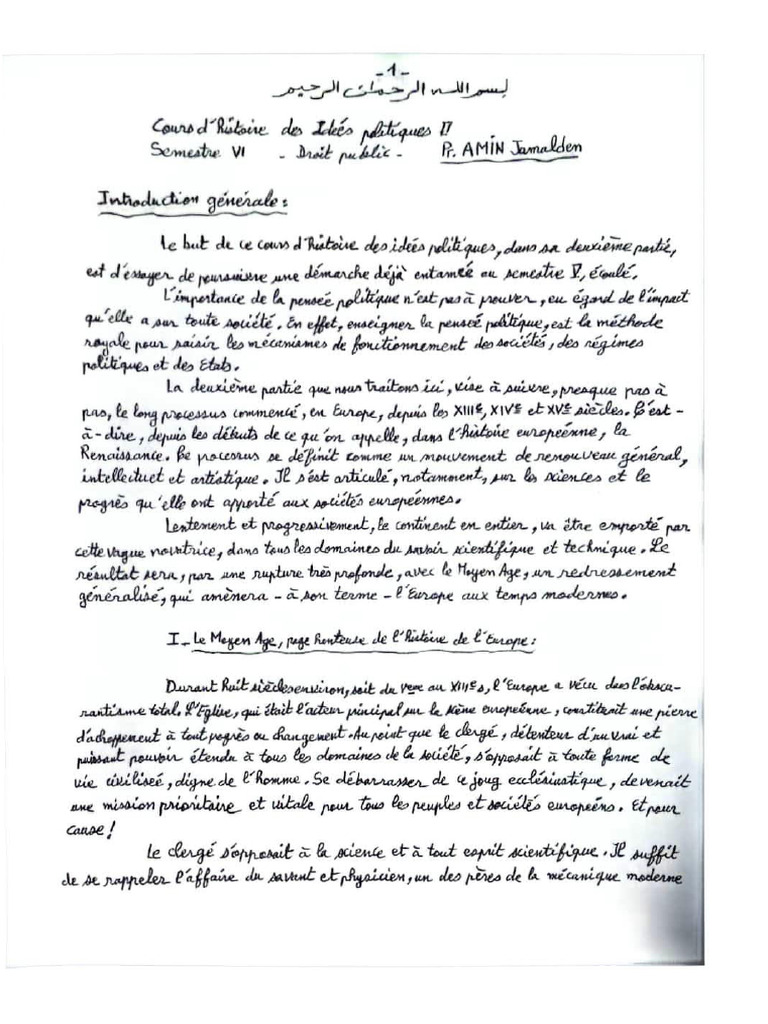 -1-
بسم الله الرحمان الرحيم
Cours d'Histoire des Idées politiques II
Semestre VI - Droit public - Pr. AMIN Jamalden
Introduction générale :
Le but de ce cours d'histoire des idées politiques, dans sa deuxième partie,
est d'éssayer de poursuivre une démarche déjà entamée au semestre V, écoulé.
L'importance de la pensée politique n'est pas à prouver, eu égard de l'impact
qu'elle a sur toute société. En effet, enseigner la pensée politique, est la méthode
royale pour saisir les mécanismes de fonctionnement des sociétés, des régimes
politiques et des Etats.
La deuxième partie que nous traitons ici, vise à suivre, presque pas à
pas, le long processus commencé, en Europe, depuis les XIIIe, XIVe et XVe siècles. C'est-
à-dire, depuis les débuts de ce qu'on appelle, dans l'histoire européenne, la
Renaissance. Ce processus se définit comme un mouvement de renouveau général,
intellectuel et artistique. Il s'est articulé, notamment, sur les sciences et le
progrès qu'elle ont apporté aux sociétés européennes.
Lentement et progressivement, le continent en entier, va être emporté par
cette vague novatrice, dans tous les domaines du savoir scientifique et technique. Le
résultat sera, par une rupture très profonde, avec le Moyen Age, un redressement
généralisé, qui amènera - à son terme - l'Europe aux temps modernes.
I - Le Moyen Age, page honteuse de l'histoire de l'Europe :
Durant huit siècles environ, soit du Veme au XIIIe s, l'Europe a vécu dans l'obscu-
rantisme total. L'Eglise, qui était l'acteur principal sur la scène européenne, constituait une pierre
d'achoppement à tout pogrès ou changement. Au point que le clergé, détenteur d'un vrai et
puissant pouvoir étendu à tous les domaines de la société, s'opposait à toute forme de
vie civilisée, digne de l'homme. Se débarrasser de ce joug ecclésiastique, devenait
une mission prioritaire et vitale pour tous les peuples et sociétés européens. Et pour
cause !
Le clergé s'opposait à la science et à tout esprit scientifique. Il suffit
de se rappeler l'affaire du savant et physicien, un des pères de la mécanique moderne